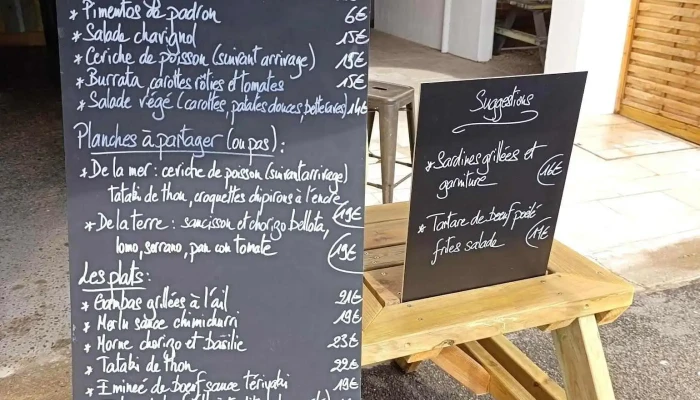 * Pimentos de padron 6€
* Salade chavignol 15€
* Ceriche de poisson (suivant arrivage) 15€
* Burrata carottes rôties et tomates 15€
* Salade végé (carottes, patates douces, betteraves) 14€
Planches à partager (ou pas) :
* De la mer : ceriche de poisson (suivant arrivage)
tataki de thon, croquettes chipirons à l'encre 19€
* De la terre : saucisson et chorizo bellota,
lomo, serrano, pan con tomate 19€
Les plats :
* Gambas grillées à l'ail 21€
* Merlu sauce chimichurri 19€
* Morue chorizo et basilic 23€
* Tataki de thon 22€
* Eminceé de bœuf sauce tériyaki 19€
Suggestions
* Sardines grillées et
garniture 16€
* Tartare de bœuf poêlé
frites salade 19€